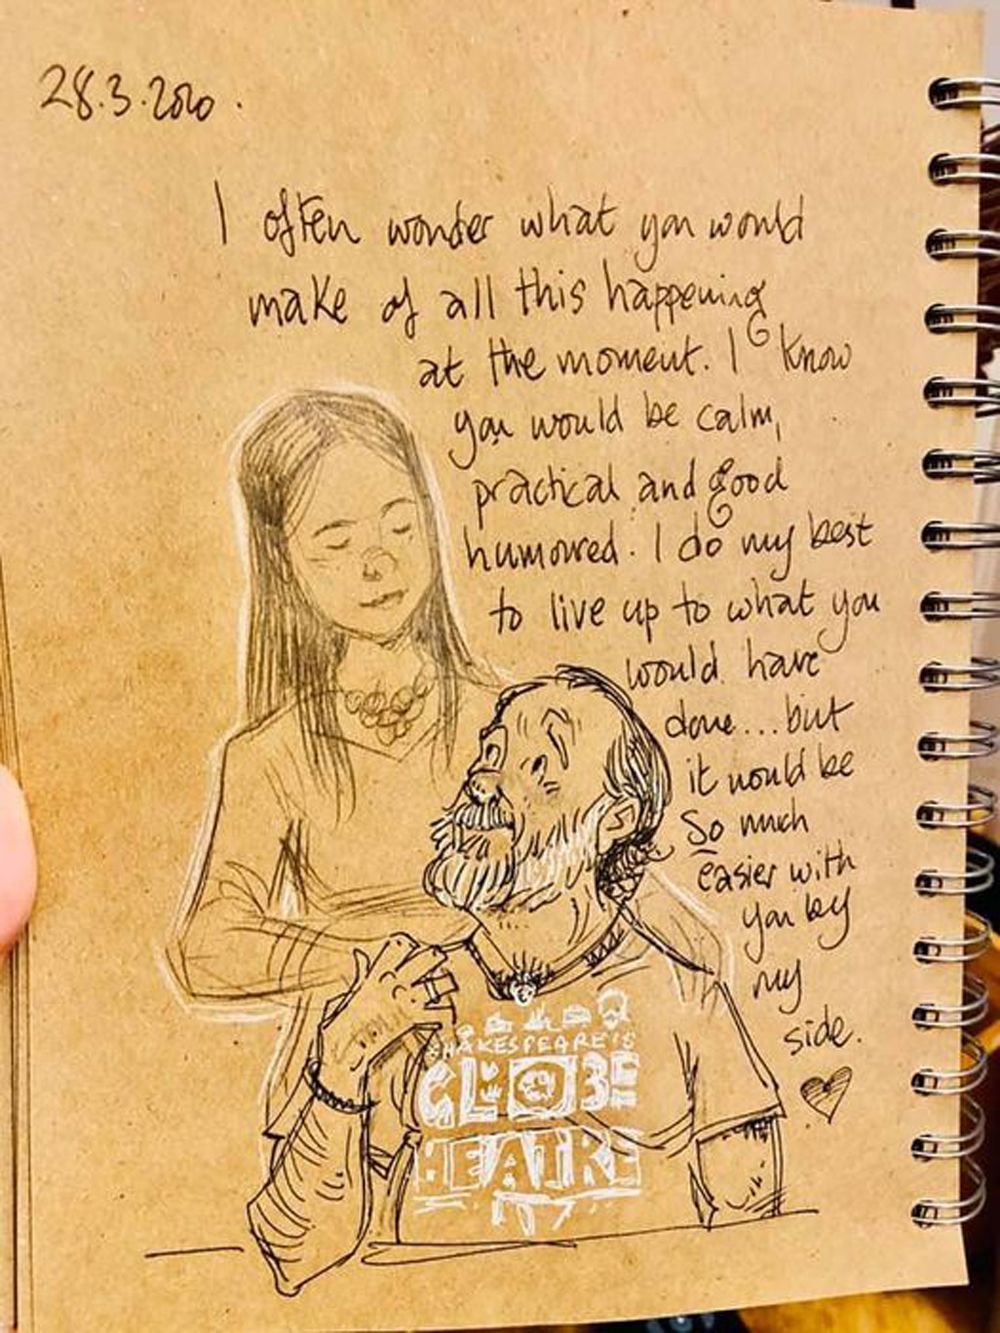 28.3.2020.
I often wonder what you would
make of all this happening
at the moment. I know
you would be calm,
practical and good
humoured. I do my best
to live up to what you
would have
done... but
it would be
so much
easier with
you by
my
side.
SHAKESPEARE'S
GLOBE
HEATRE